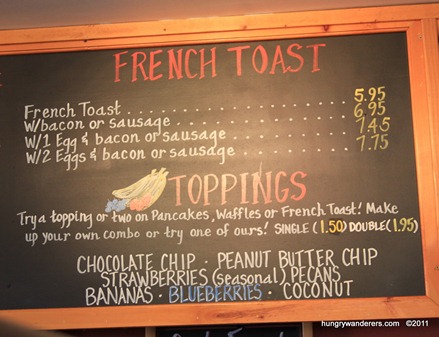 FRENCH TOAST
French Toast . . . . . . . . . . . . . . . . . . . . 5.95
W/bacon or sausage . . . . . . . . . . . . . . 6.95
W/1 Egg & bacon or sausage . . . . . . . . . 7.45
W/2 Eggs & bacon or sausage . . . . . . . . 7.75
TOPPINGS
Try a topping or two on Pancakes, Waffles or French Toast! Make
up your own combo or try one of ours! SINGLE (1.50) DOUBLE (1.95)
CHOCOLATE CHIP · PEANUT BUTTER CHIP
STRAWBERRIES (Seasonal) PECANS
BANANAS · BLUEBERRIES · COCONUT
hungrywanderers.com ©2011